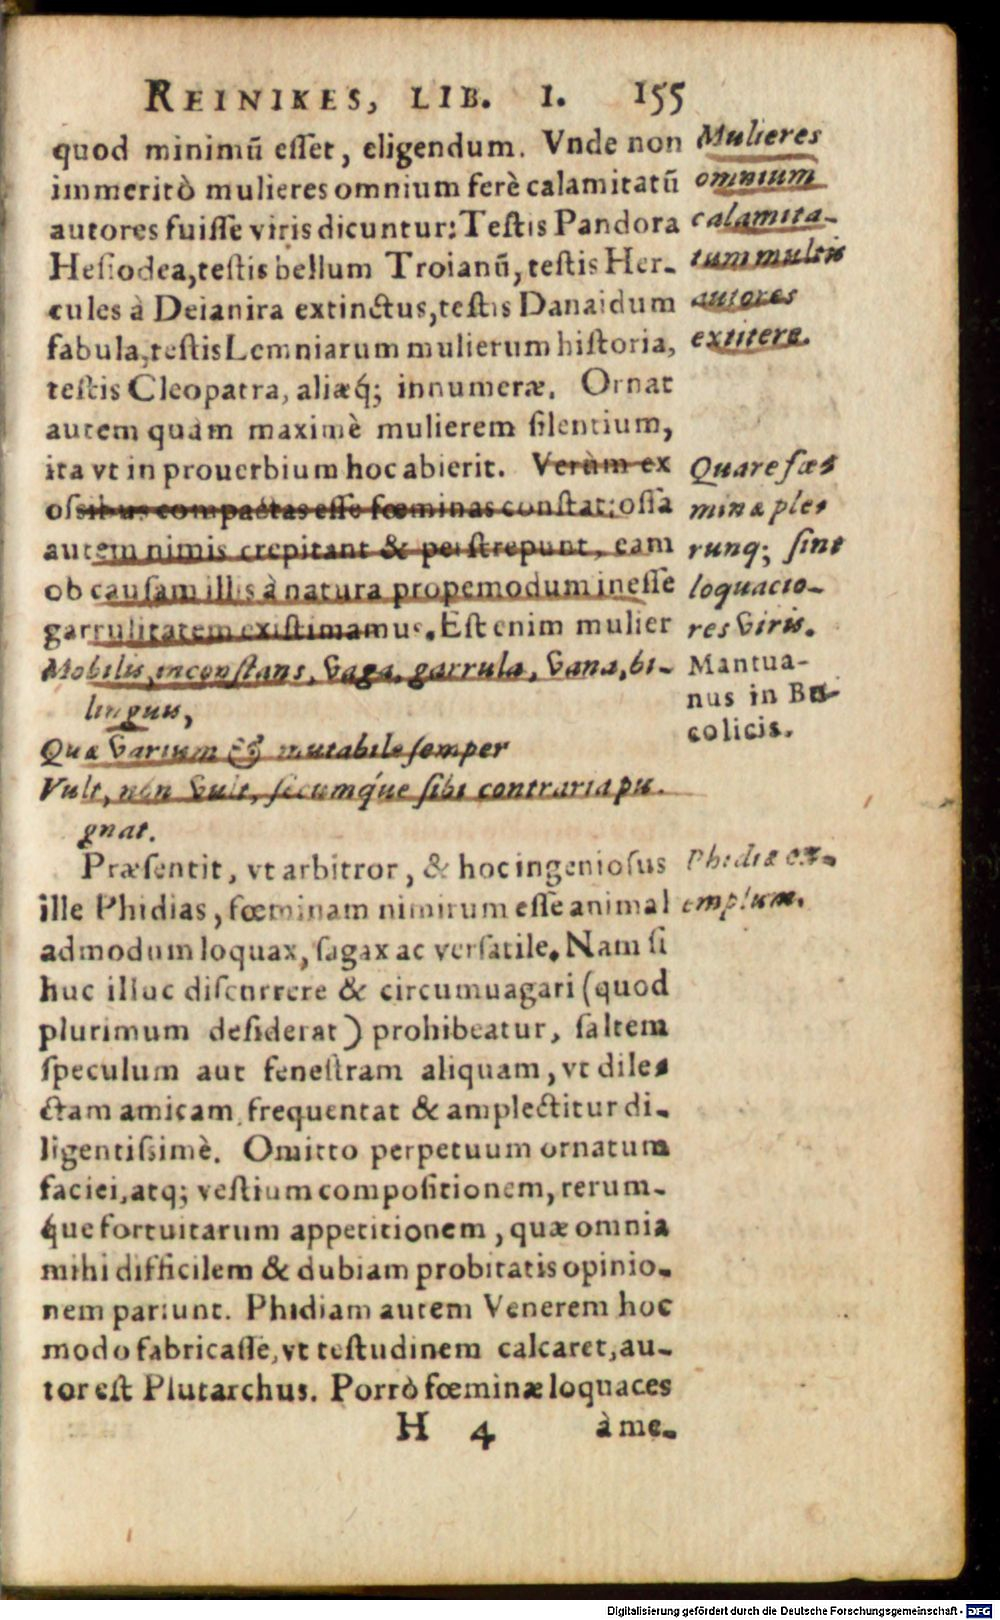 REINIKES, LIB. I. 155
quod minimū esset, eligendum. Vnde non
immeritò mulieres omnium ferè calamitatū
autores fuisse viris dicuntur: Testis Pandora
Hesiodea, testis bellum Troianū, testis Her-
cules à Deianira extinctus, testis Danaidum
fabula, testis Lemniarum mulierum historia,
testis Cleopatra, aliæq́; innumeræ. Ornat
autem quàm maximè mulierem silentium,
ita vt in prouerbium hoc abierit. Verùm ex
ossibus compactas esse fœminas constat: ossa
autem nimis crepitant & perstrepunt, eam
ob causam illis à natura propemodum inesse
garrulitatem existimamus. Est enim mulier
Mobilis, inconstans, vaga, garrula, vana, bi-
linguis,
Quæ varium & mutabile semper
Vult, non vult, secumq́ue sibi contraria pu-
gnat.
Præsentit, vt arbitror, & hoc ingeniosus
ille Phidias, fœminam nimirum esse animal
admodum loquax, sagax ac versatile. Nam si
huc illuc discurrere & circumuagari (quod
plurimum desiderat) prohibeatur, saltem
speculum aut fenestram aliquam, vt dile-
ctam amicam, frequentat & amplectitur di-
ligentissimè. Omitto perpetuum ornatum
faciei, atq; vestium compositionem, rerum-
q́ue fortuitarum appetitionem, quæ omnia
mihi difficilem & dubiam probitatis opinio-
nem pariunt. Phidiam autem Venerem hoc
modo fabricasse, vt testudinem calcaret, au-
tor est Plutarchus. Porrò fœminæ loquaces
H 4 à me-
Mulieres
omnium
calamita-
tum multis
autores
extitere.
Quare fœ-
minæ ple-
runq; sint
loquacio-
res viris.
Mantua-
nus in Bu-
colicis.
Phidiæ ex-
emplum.
Digitalisierung gefördert durch die Deutsche Forschungsgemeinschaft - DFG